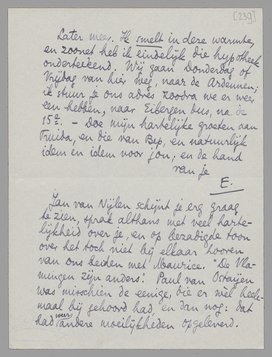 [239]
Later meer. Ik smelt in deze warmte,
en zoonet heb ik eindelijk die hypotheek
onderteekend. Wij gaan Donderdag of
Vrijdag van hier weg, naar de Ardennen;
ik stuur je ons adres zoodra we er weer
een hebben, naar Eibergen dus, na de
15e. – Doe mijn hartelijke groeten aan
Truida, en die van Bep, en natuurlijk
idem in idem voor jou, en de hand
van je
E.
Jan van Nijlen schijnt je erg graag
te zien, sprak althans met veel harte-
lijkheid over je, en op bezadigde toon
over het toch niet bij elkaar hooren
van ons beiden met Maurice. "De Vla-
mingen zijn anders! Paul van Ostaijen
was misschien de eenige, die er wel heele-
maal bij gehoord had, en dan nog: dat
had weer andere moeilijkheden opgeleverd.